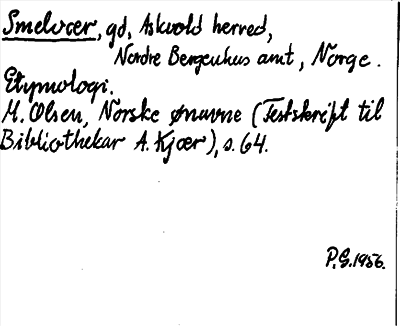 Smelvær, gd, Askvold herred,
Nordre Bergenhus amt, Norge.
Etymologi.
M. Olsen, Norske ønavne (Festskrift til
Bibliothekar A. Kjær), s. 64.
P.G. 1956.